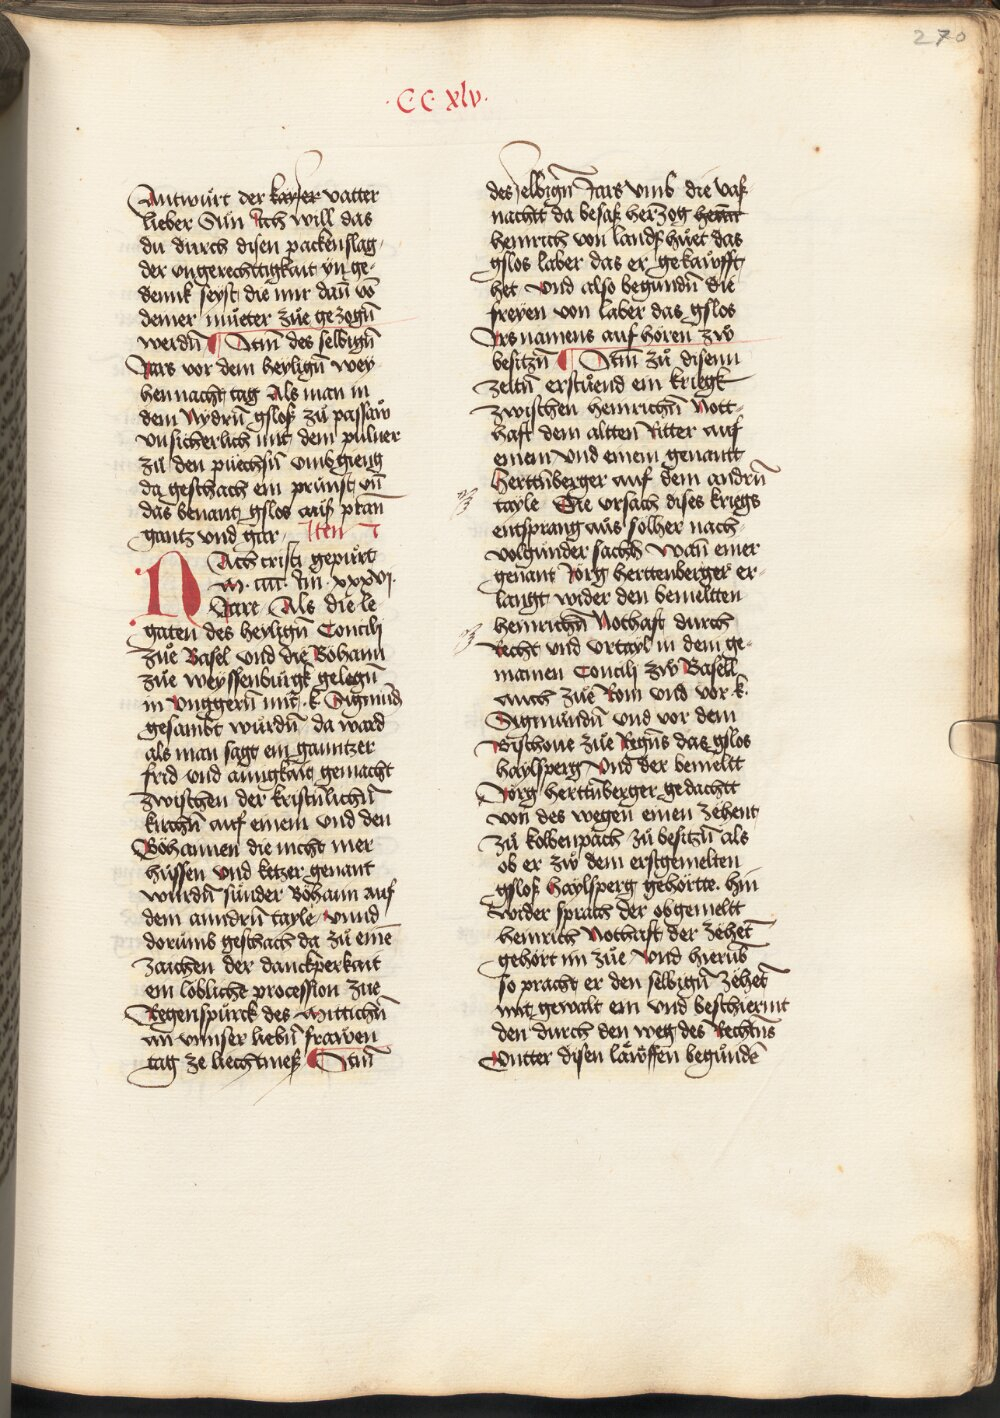 270
·CC·xlv·
Antwu̇rt der kayser vatter
lieber Sun Ich will das
du durch disen packenslag
der vngerechtigkait vn̄ ge-
dennk seyst die mir dan̄ vō
deiner mu̇eter zu̇e gezogn̄
werdn̄ Itm̄ des selbign̄
Jars vor dem heylign̄ wey
hennacht tag Als man in
dem Nydrn̄ gslos zu̇ passaw
vnsicherlich mit dem puluer
zu̇ den pu̇echsn̄ vmbgieng
da geschach ein prunst vn̄
das benant gslos
gantz vnd gar
Nach cristi gepu̇rt
M· cccc· Im· xxxvj·
Jare Als die le
gaten des heylign̄ Concilj
zu̇e Basel vnd die Bohann
zu̇e weyssenbu̇rgk gelegn̄
in Vnggern̄ mit k. Sigmund
gesambt wu̇rdn̄ da ward
als man sagt ein gantzer
frid vnd ainigkait gemacht
zwischen der kristnlichn̄
kirchn̄ auf einem vnd den
Böhannen die nicht mer
hu̇ssen vnd ketzer genant
wurdn̄ su̇nder Böhann auf
dem anndrn̄ tayle vnnd
dorumb geschach da zu̇ einē
zaichen der danckperkait
ein lobliche procession zu̇e
Regenspu̇rck des Mittichn̄
an vnnser liebn̄ frawen
tag ze liechtmess Itm̄
des selbign̄ Jars vmb die vaß
nacht da besaß herzog heinr
heinrich von landshu̇et das
gslos laber das er gekawfft
het vnd also begundn̄ die
freyen von laber das gslos
Irs namens auf hören zw
besitzn̄ Itm̄ zu̇ disenn
zeitn̄ erstu̇end ein kriegk
zwischen heinrichn̄ Nott-
haft dem altten Ritter auf
einem vnd einem genantt
herttnberger auf dem andrn̄
tayle Die vrsach dises kriegs
entsprang aus solher nach-
volgunder sachh Wan̄ einer
genant Jörg herttenberger er-
langt wider den bemeltten
heinrichn̄ Nothaft durch
Recht vnd vrtayl in dem ge-
mainen Concilj zw Basell
auch zu̇e Rom vnd vor k.
Sigmu̇ndn̄ vnd vor dem
Bischoue zu̇e Regns das gslos
haylsperg Vnd der bemeltt
Jörg herttnberger gedachtt
von des wegen einen zehent
zu̇ kolbenpach zu̇ besitzn̄ als
ob er zw dem erstgemelten
gslos haylsperg gehörtte. Hin
wider sprach der obgemeltt
heinrich Nothaft der zehet̄
gehört im zu̇e Vnd hierub̄
so pracht er den selbign̄ zehet̄
mit gewalt ein vnd beschiermt
den durch den weg des Rechtn̄s
Vntter disen läwffen begu̇ndē